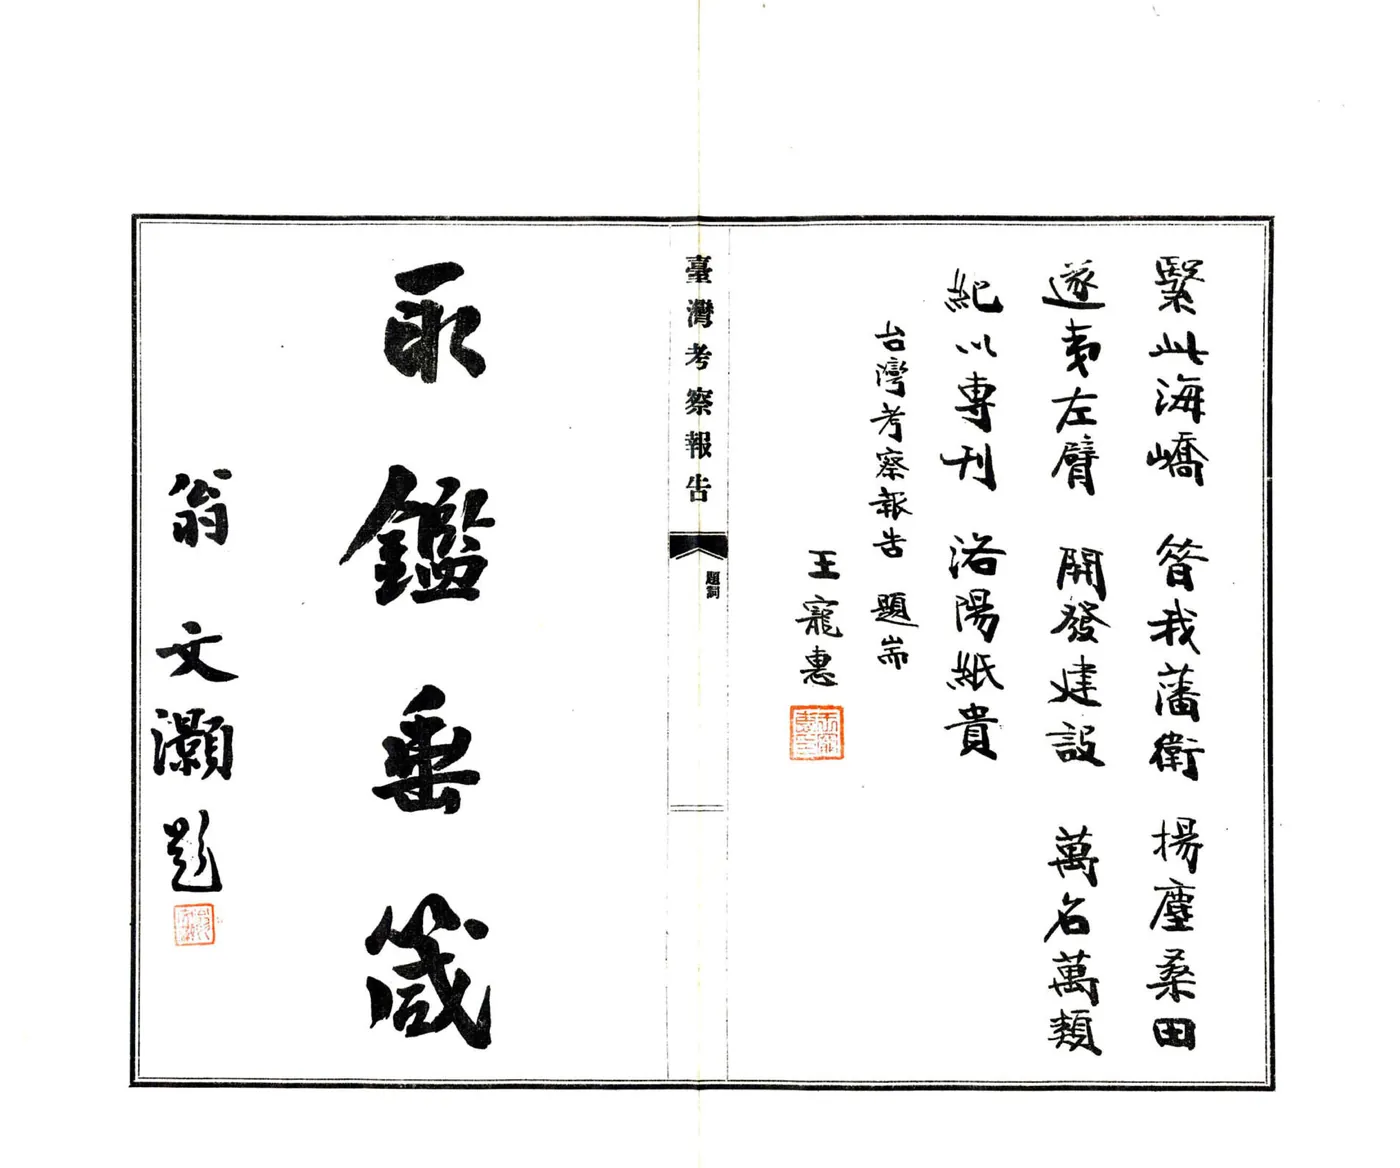 繄此海嶠 昔我藩衛 揚塵桑田
遂夷左臂 開發建設 萬名萬類
紀以專刊 洛陽紙貴
台灣考察報告 題耑
王寵惠
臺灣考察報告
題詞
永鑑垂箴
翁文灝題